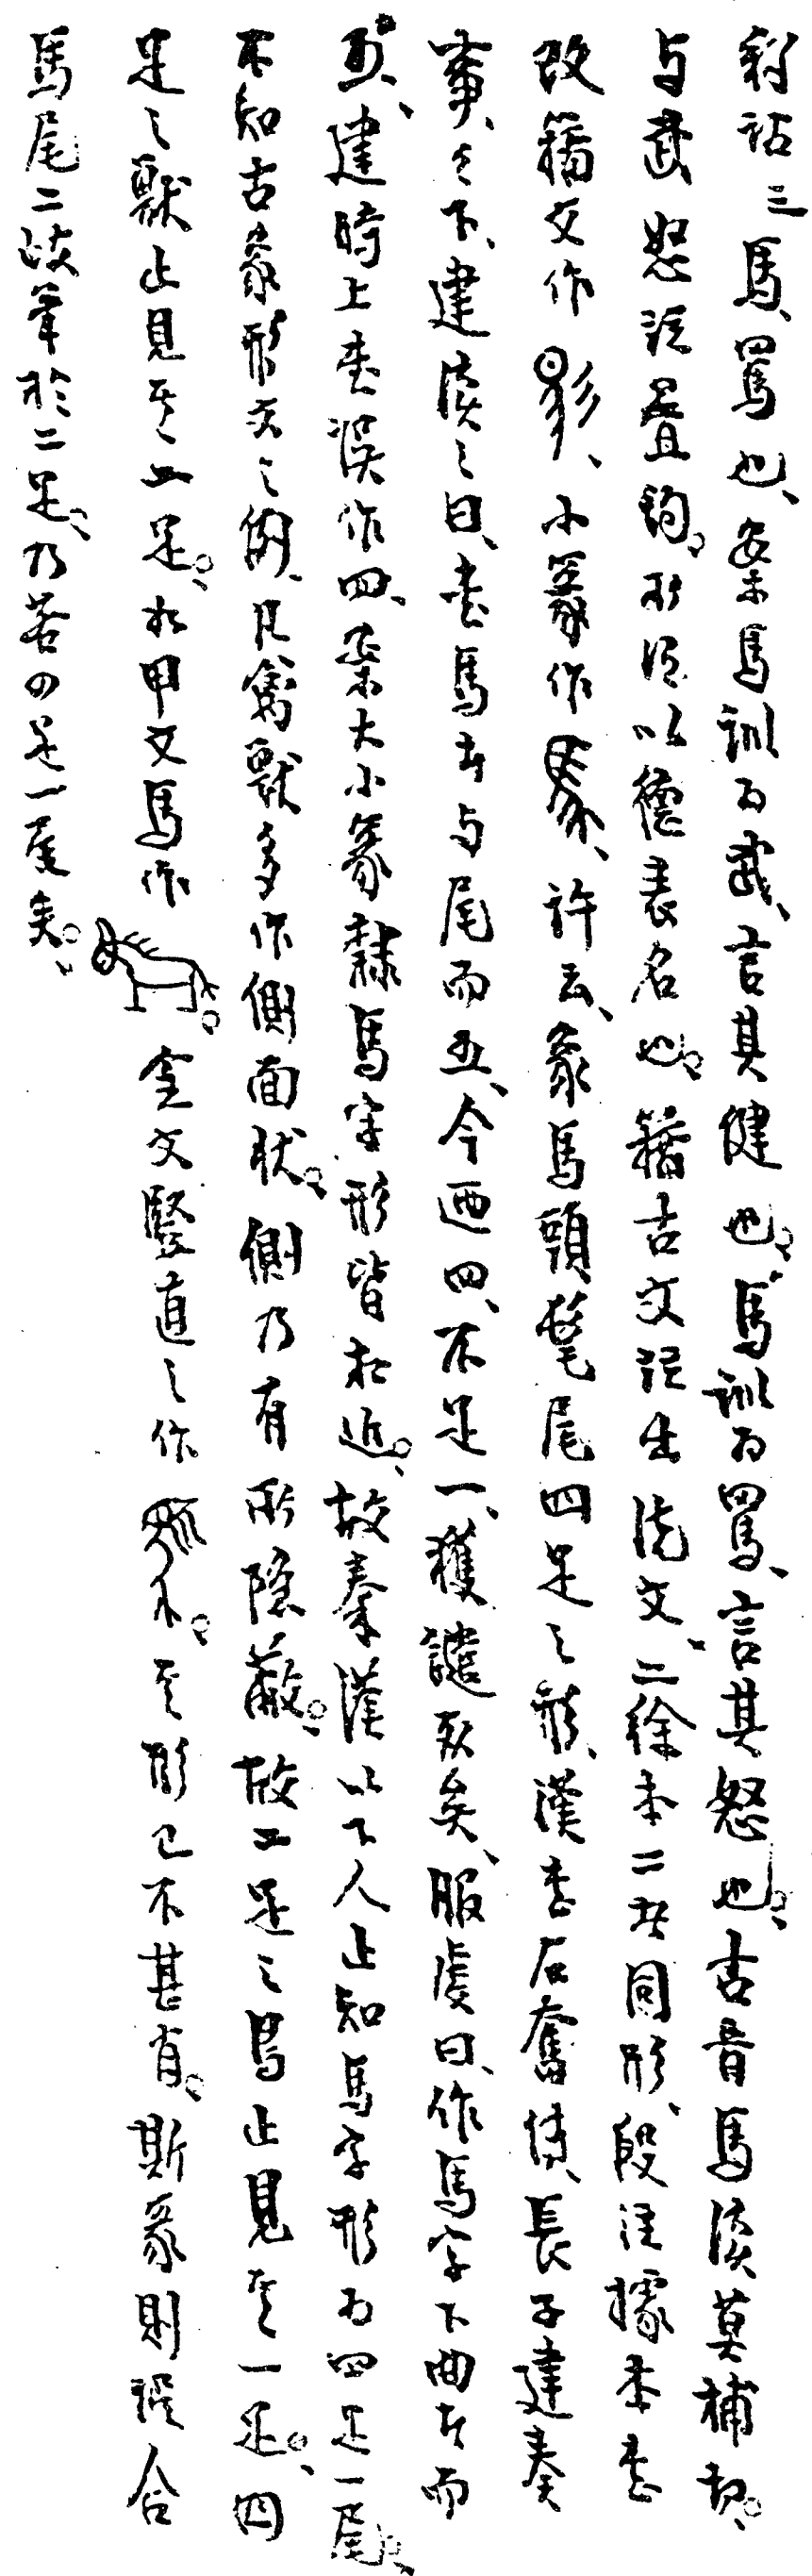 釋詁三、馬、罵也、案馬訓為武、言其健也。馬訓為罵、言其怒也。古音馬讀莫補切。
与武怒詎疊韵。所謂以德表名也。籀古文誤出說文、二徐本二共同形、段注據本書
改籀文作影、小篆作馬、許云、象馬頭髦尾四足之形、漢書石奮傳、長子建奏
事、事下、建讀之曰、書馬者与尾而五、今迺四、不足一、獲譴死矣、服虔曰、作馬字下曲者而
五、建時上書誤作四、案大小篆隸馬字形皆相近。故秦漢以下人止知馬字形为四足一尾。
不知古象形文之例、凡禽獸多作側面狀。側乃有所隱蔽。故二足之鳥止見其一足。四
足之獸止見其二足。如甲文馬作 。金文豎直之作 。其形已不甚肖。斯篆則誤合
馬尾二歧筆於二足、乃若四足一尾矣。